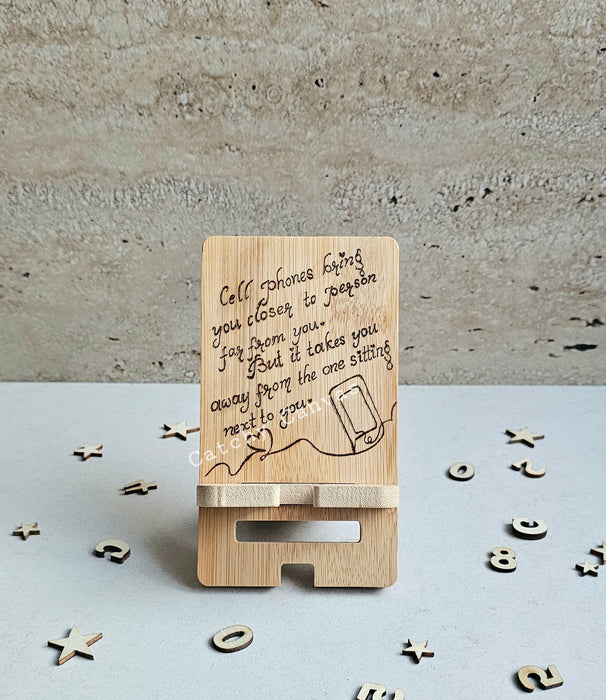 Cell phones bring
you closer to person
far from you.
But it takes you
away from the one sitting
next to you.
Catchy Canvas
4
0
2
5
8
0
5